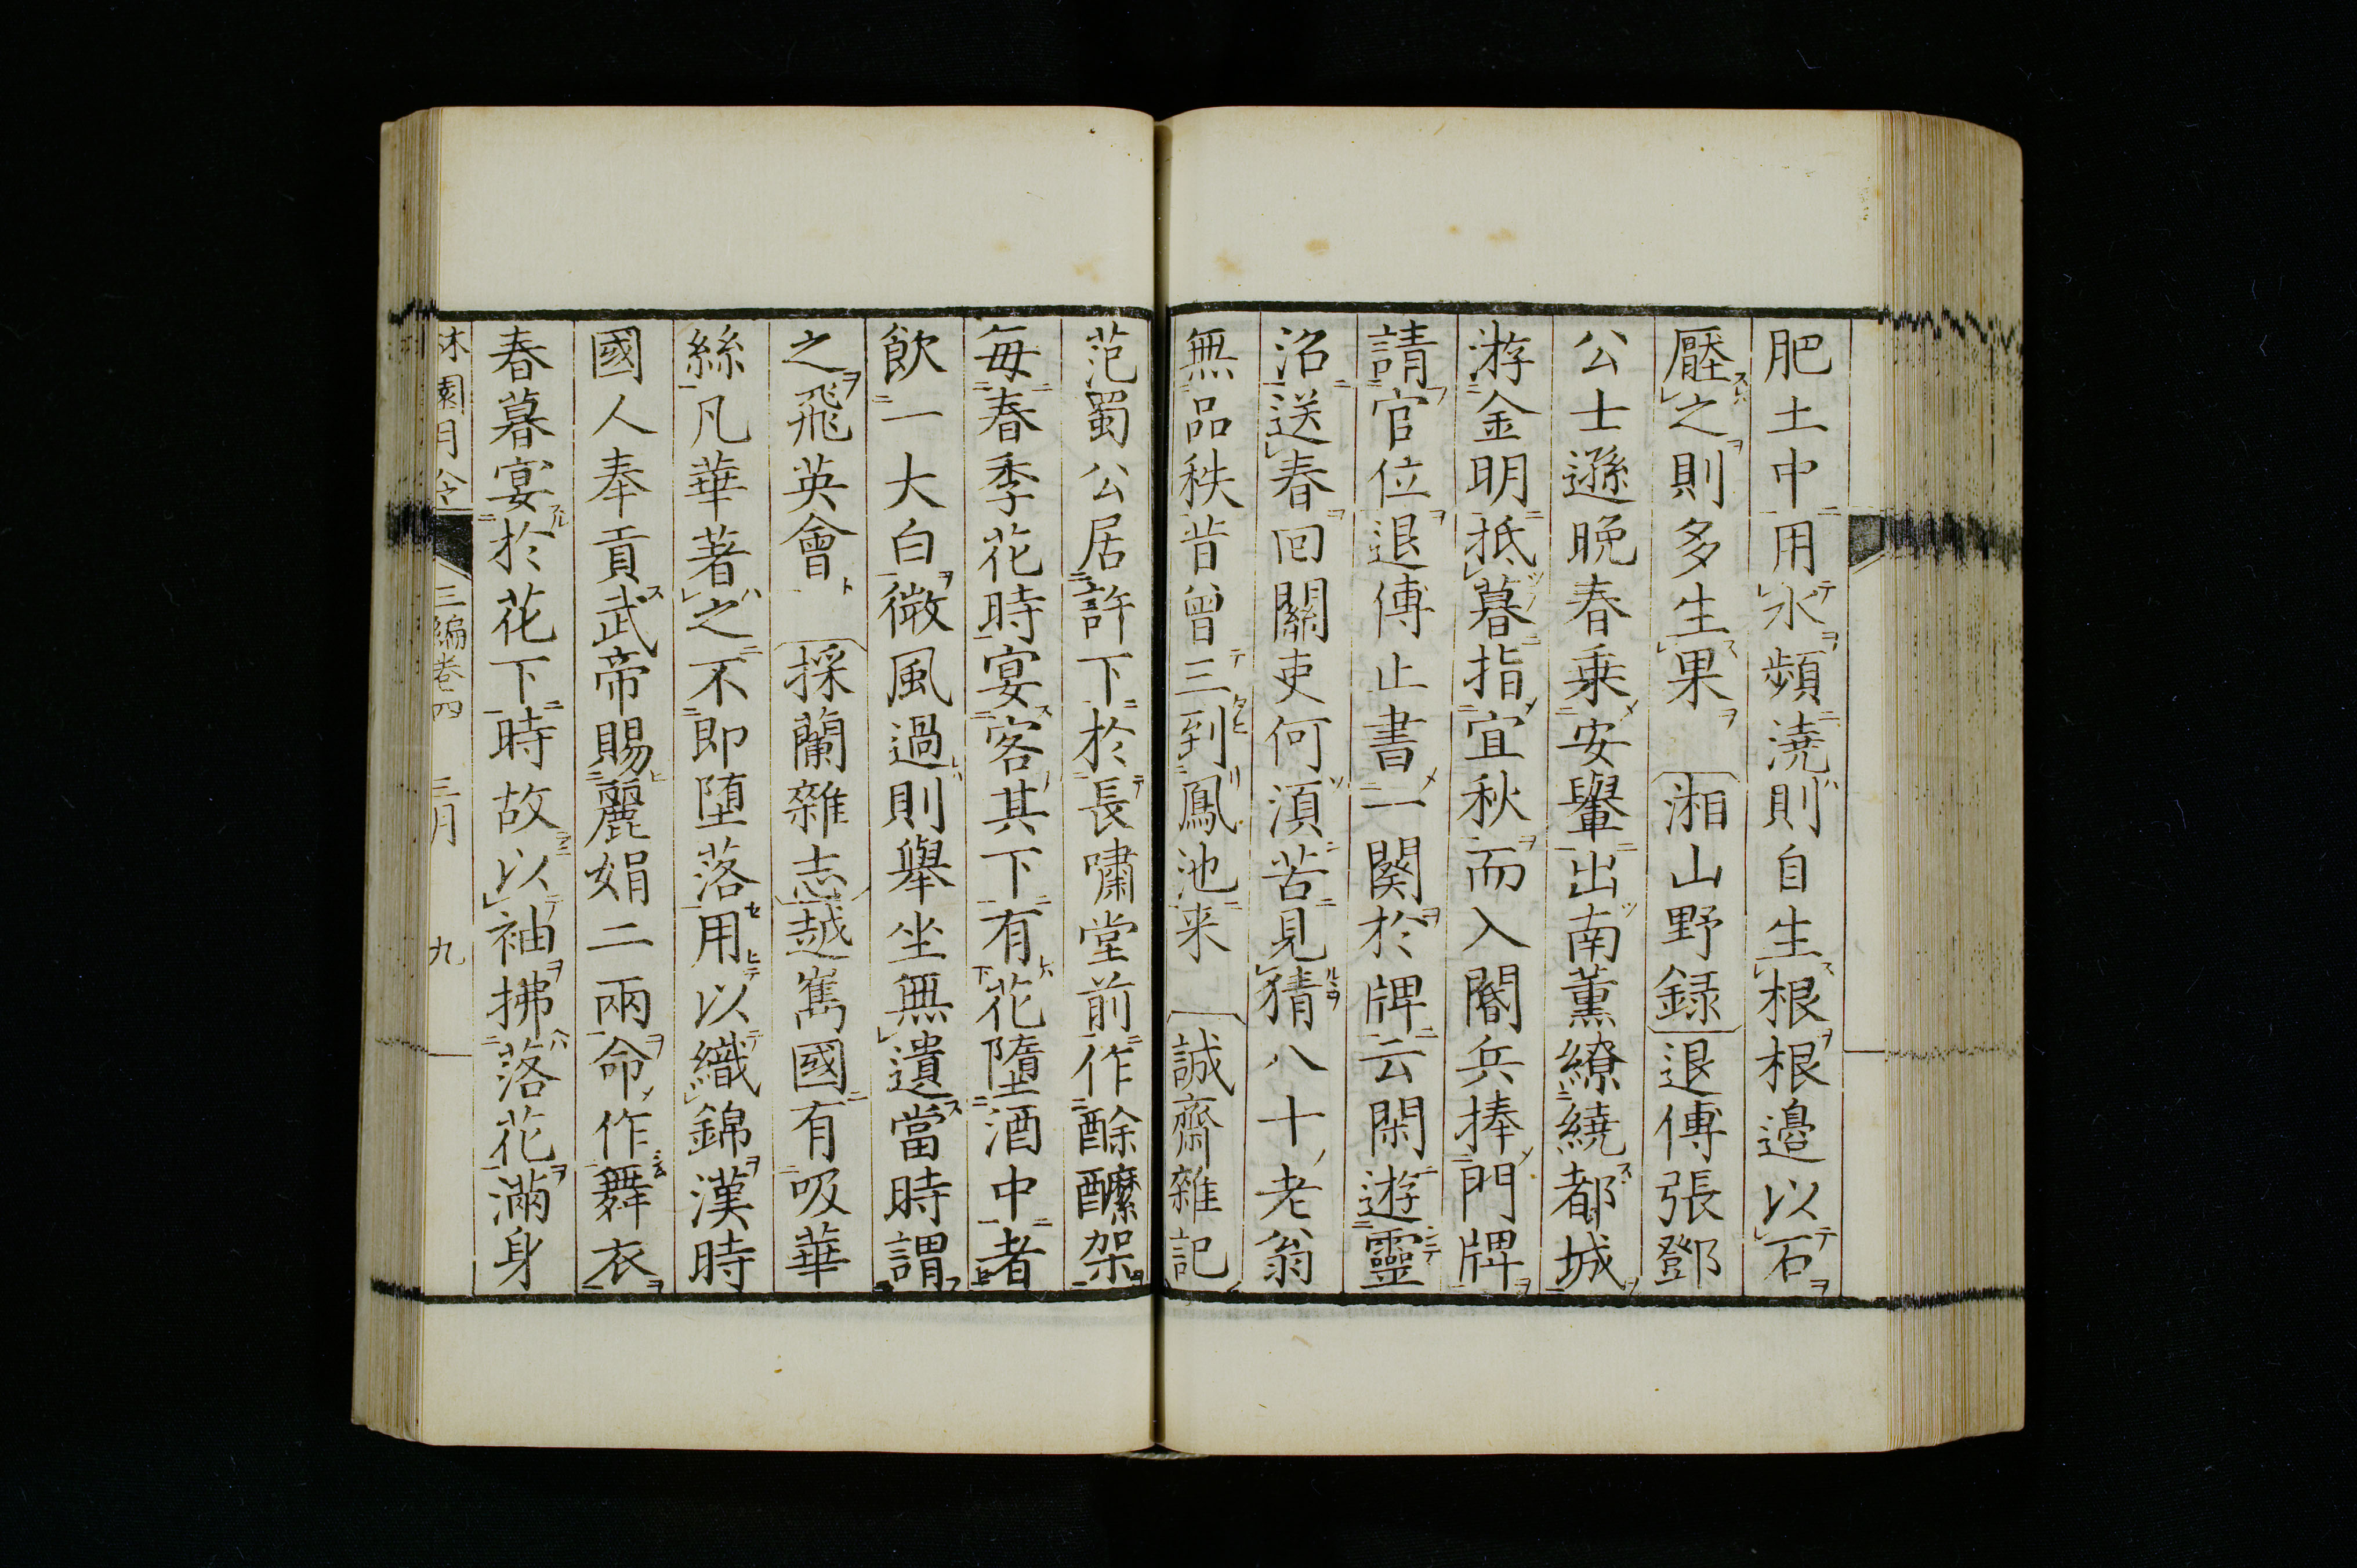 肥土中用水頻澆則自生根根邉以石
壓之則多生果 湘山野録 退傅張鄧
公士遜晩春乗安轝出南薫繚繞都城
游金明抵暮指宜秋而入閽兵捧門牌
請官位退傅止書一闋於牌云閑遊靈
沼送春回關吏何湏苦見猜八十老翁
無品秩昔曾三到鳳池来 誠齋雜記
范蜀公居許下於長嘯堂前作酴醾架
毎春季花時宴客其下有花墮酒中者
飲一大白微風過則擧坐無遺當時謂
之飛英會 採蘭雜志 越嶲國有吸華
絲凡華著之不即堕落用以織錦漢時
國人奉貢武帝賜麗娟二兩命作舞衣
春暮宴於花下時故以袖拂落花滿身
園月令 三編巻四 三月 九